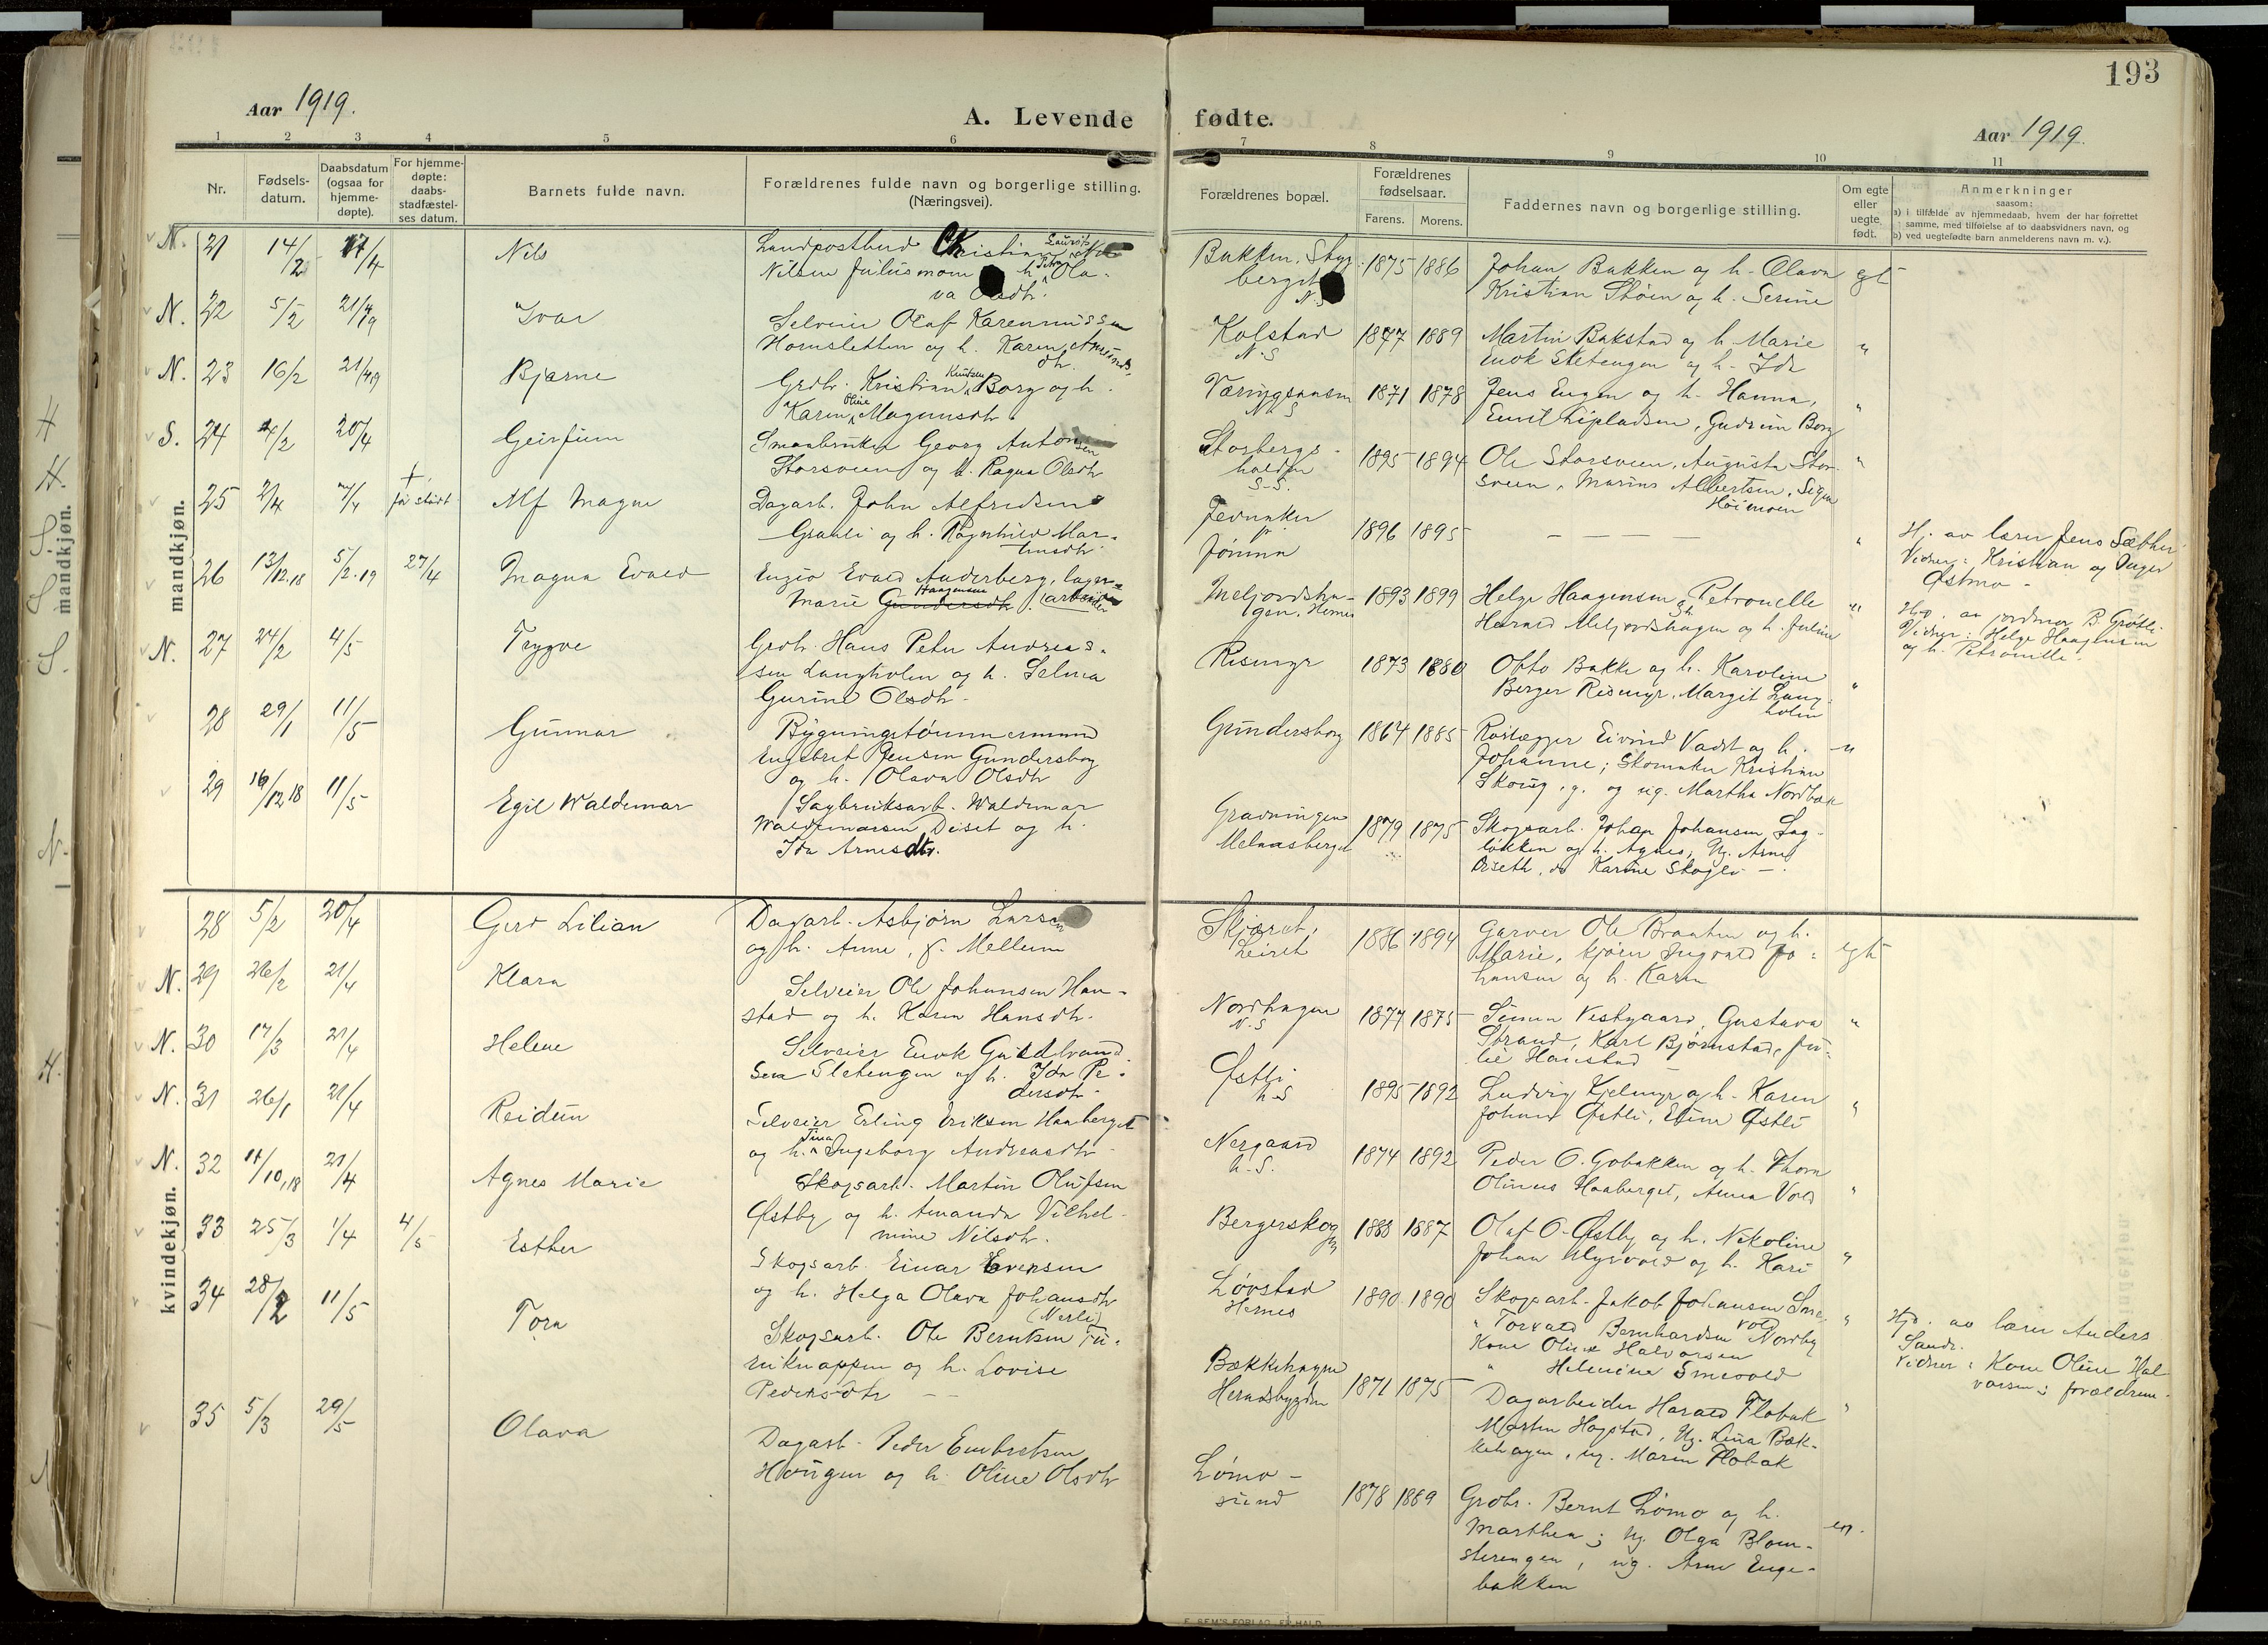 193
Aar 1919.
A. Levende fødte.
Aar 1919.
1 2 3 4 5 6 7 8 9 10 11
Nr.
Fødsels-
datum.
Daabsdatum
(ogsaa for
hjemme-
døpte).
For hjemme-
døpte:
daabs-
stadfæstel-
ses datum.
Barnets fulde navn.
Forældrenes fulde navn og borgerlige stilling.
(Næringsvei).
Forældrenes bopæl.
Forældrenes
fødselsaar.
Farens. Morens.
Faddernes navn og borgerlige stilling.
Om egte
eller
uegte
født.
Anmerkninger
saasom:
a) i tilfælde av hjemmedaab, hvem der har forrettet
samme, med tilføielse af to daabsvidners navn, og
b) ved uegtefødte barn anmelderens navn m. v.).
mandkjøn.
N. 21 14/2 Nils
Landpostbud Kristian Laurits
Nilsen Juliusmoen h. Petra Ola-
va Olsdtr.
Bakken, 1875 1886
N.S
Johan Bakken og h. Olava egt
Kristian Støen og h. Serine
N. 22 5/2 21/4 19 Ivar
Selveier Olaf Karenussen
Hornsletten og h. Karen Amunds
dtr.
Kolstad 1877 1889
N.S
Martin Bakstad og h. Marie "
Enok Sletengen og h. Ida
N. 23 16/2 21/4 19 Bjarne
Grdbr. Kristian Knutsen Borg og h.
Karen Oline Magnusdtr.
N S 1871 1878
Jens Engen og h. Hanna, "
Gudrun Borg
S. 24 4/2 20/4 Geirfinn
Smaabruker Georg Antonsen
Storsveen og h. Ragna Olsdtr
Storbergs-
holden 1895 1894
S-S.
Ole Storsveen, Augusta Stor- "
sveen, Marius Albertsen, Signe
Høiemoen
25 2/4 7/4 + før stadf. Alf Magne
Dagarb. John Alfredsen
Granli og h. Ragnhild Mar-
tinsdtr.
Jømna 1896 1895
— — — — "
Hj. av lærer Jens Sæther
Vidner: Kristian og Inger
Østmo -
26 13/12.18 5/2.19 27/4 Magna Evald
Enzio Evald Anderberg, lager-
arbeider
Marie Gundersdtr. Haagensen
Meljordsha-
gen, Hernes 1893 1899
Helge Haagensen og h. Petronelle "
Harald Meljordshagen og h. Juline
Hjd. av jordmor B. Grøtli.
Vidner: Helge Haagensen
og h. Petronelle.
N. 27 24/2 4/5 Trygve
Grdbr. Hans Peter Andreas-
sen Langholen og h. Selma
Gurine Olsdtr.
Rismyr 1873 1880
Otto Bakke og h. Karoline "
Berger Rismyr, Margit Lang-
holen
28 29/1 11/5 Gunnar
Bygningstømmermand
Engebret Jensen Gundersborg
og h. Olava Olsdtr
Gundersborg 1864 1885
Eivind Vadst og h. "
Johanne; Skomaker Kristian
Skoug, g. og ug. Martha Nordbæk
29 16/12 18 11/5 Egil Waldemar
Sagbruksarb. Waldemar
Waldemarsen Diset og h.
Ida Arnesdtr.
Gravningen
Melaasberget 1879 1875
Skogsarb. Johan Johansen Lag-
løkken og h. Agnes, Ug. Arne
Diseth, do Karine Skogli —.
kvindekjøn.
28 5/2 20/4 Gerd Lilian
Dagarb. Asbjørn Larsen
og h. Anne, f. Mellem
Skjæret,
Leiret 1886 1894
Garver Ole Braaten og h. egt
Marie, Ingvald Jo-
hansen og h. Karen
N. 29 26/2 21/4 Klara
Selveier Ole Johansen Han-
stad og h. Karen Hansdtr.
Nordhagen
N.S 1877 1875
Simen Vestgaard, Gustava "
Strand, Karl Bjørnstad, Ju-
lie Hanstad
N. 30 17/3 21/4 Helene
Selveier Enok Guldbrand-
sen Sletengen og h. Ida Pe-
dersdtr.
Østli
N.S 1895 1892
Ludvig Kjelmyr og h. Karen "
Johan Østli, Eline Østli
N. 31 26/1 21/4 Reidun
Selveier Erling Eriksen Haaberget
og h. Tina Ingeborg Andreasdtr
Nergaard
N.S. 1874 1892
Peder O. Gobakken og h. Thora
Olinus Haaberget, Anna Vold "
N. 32 11/10,18 21/4 Agnes Marie
Skogsarb. Martin Olufsen
Østby og h. Amanda Vilhel-
mine Nilsdtr.
Bergerskog 1888 1887
Olaf O. Østby og h. Nikoline
Johan Myrvold og h. Kari "
33 25/3 1/4 4/5 Esther
Skogsarb. Einar Evensen
og h. Helga Olava Johansdtr
(Nerli)
Løvstad
Hernes 1890 1890
Skogsarb. Jakob Johansen Sme- "
vold
" Torvald Bernhardsen Nordby
Kone Oline Halvorsen
" Helmine Smevold
Hjd. av lærer Anders
Sandr.
Vidner: Kone Oline Hal
vorsen; forældrene.
34 28/2 11/5 Tora
Skogsarb. Ole Berntsen Fu-
ruknappen og h. Lovise
Pedersdtr — —
Bækkehagen
Hernesbygden 1871 1875
Dagarbeider Harald Flobak "
Martin Hagstad, Ug. Lina Bæk-
kehagen, ug. Maren Flobak
35 5/3 29/5 Olava
Dagarb. Peder Embretsen
Haugen og h. Oline Olsdtr
Lømo -
sund 1878 1889
Grdbr. Bernt Lømo og h.
Marthea; Ug. Olga Blom- eg.
sterengen, ug. Arne Enge-
bakken
E. SEM'S FORLAG, FR.HALD